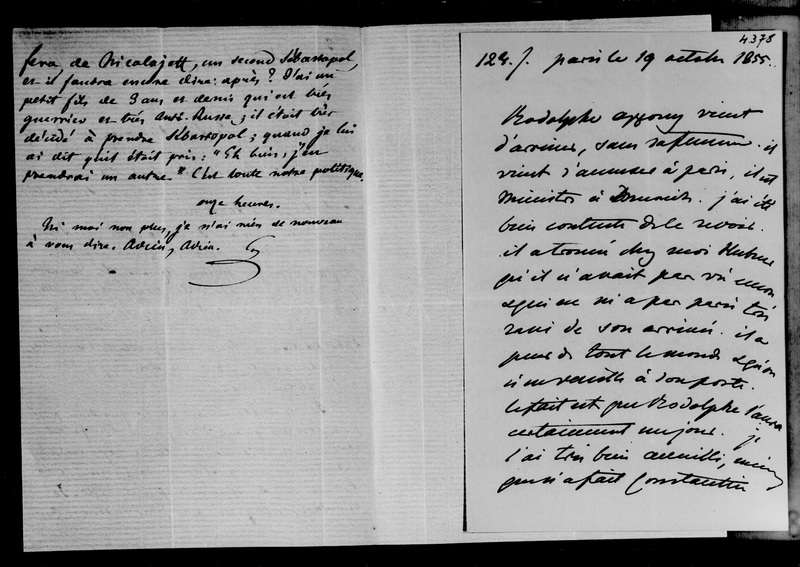 fera de Nicolajeff, un second Sébastopol,
et il faudra encore dire: après? J'ai un
petit fils de 3 ans et demi qui est très
guerrier et très Anti-Russe; il était très
décidé à prendre Sébastopol; quand je lui
ai dit qu'il était pris: "Eh bien, j'en
prendrai un autre." C'est toute notre politique.
onze heures.
Ni moi non plus, je n'ai rien de nouveau
à vous dire. Adieu, Adieu.
G
4378
124. / paris le 19 octobre 1855.
Rodolphe appony vient
d'arriver, sans sa femme. il
vient s'amuser à paris, il est
Ministre à Munich. j'ai été
bien contente de le revoir.
il a trouvé chez moi Hubner
qu'il n'avait pas vu encore
& qui ne m'a pas paru très
ravi de son arrivée. il a
peur de tout le monde & qu'on
n'en veuille à son poste.
le fait est que Rodolphe l'aura
certainement un jour. je
l'ai très bien accueilli, mieux
que n'a fait Constantin